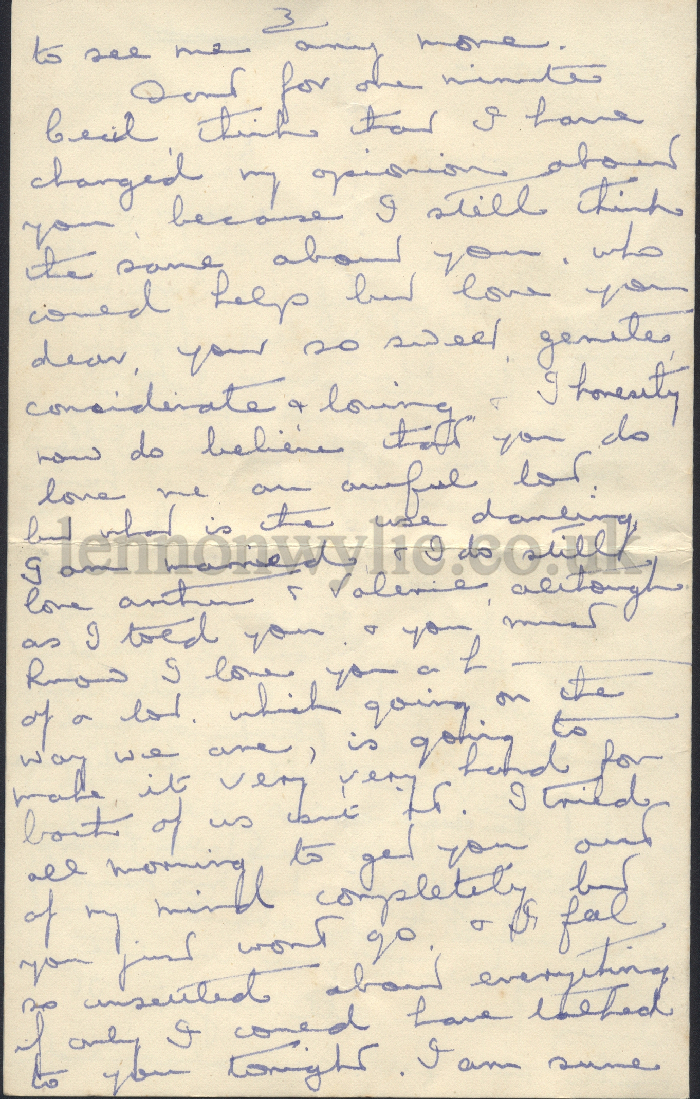 3
to see me any more.
Dont for one minute
Cecil, think that I have
changed my opionion about
you, because I still think
the same about you, who
could help but love you
dear, your so sweet, gentle,
considerate & loving & I honestly
now do believe that you do
love me an awful lot.
but what is the use darling,
I am married, & I do still
love arthur & Valerie, although
as I told you & you must
know I love you a h
of a lot. which going on the
way we are, is going to
make it very very hard for
both of us isnt it. I tried
all morning to get you out
of my mind completely but
you just wont go, & I feel
so unsettled about everything
if only I could have talked
to you tonight. I am sure
lennonwylie.co.uk